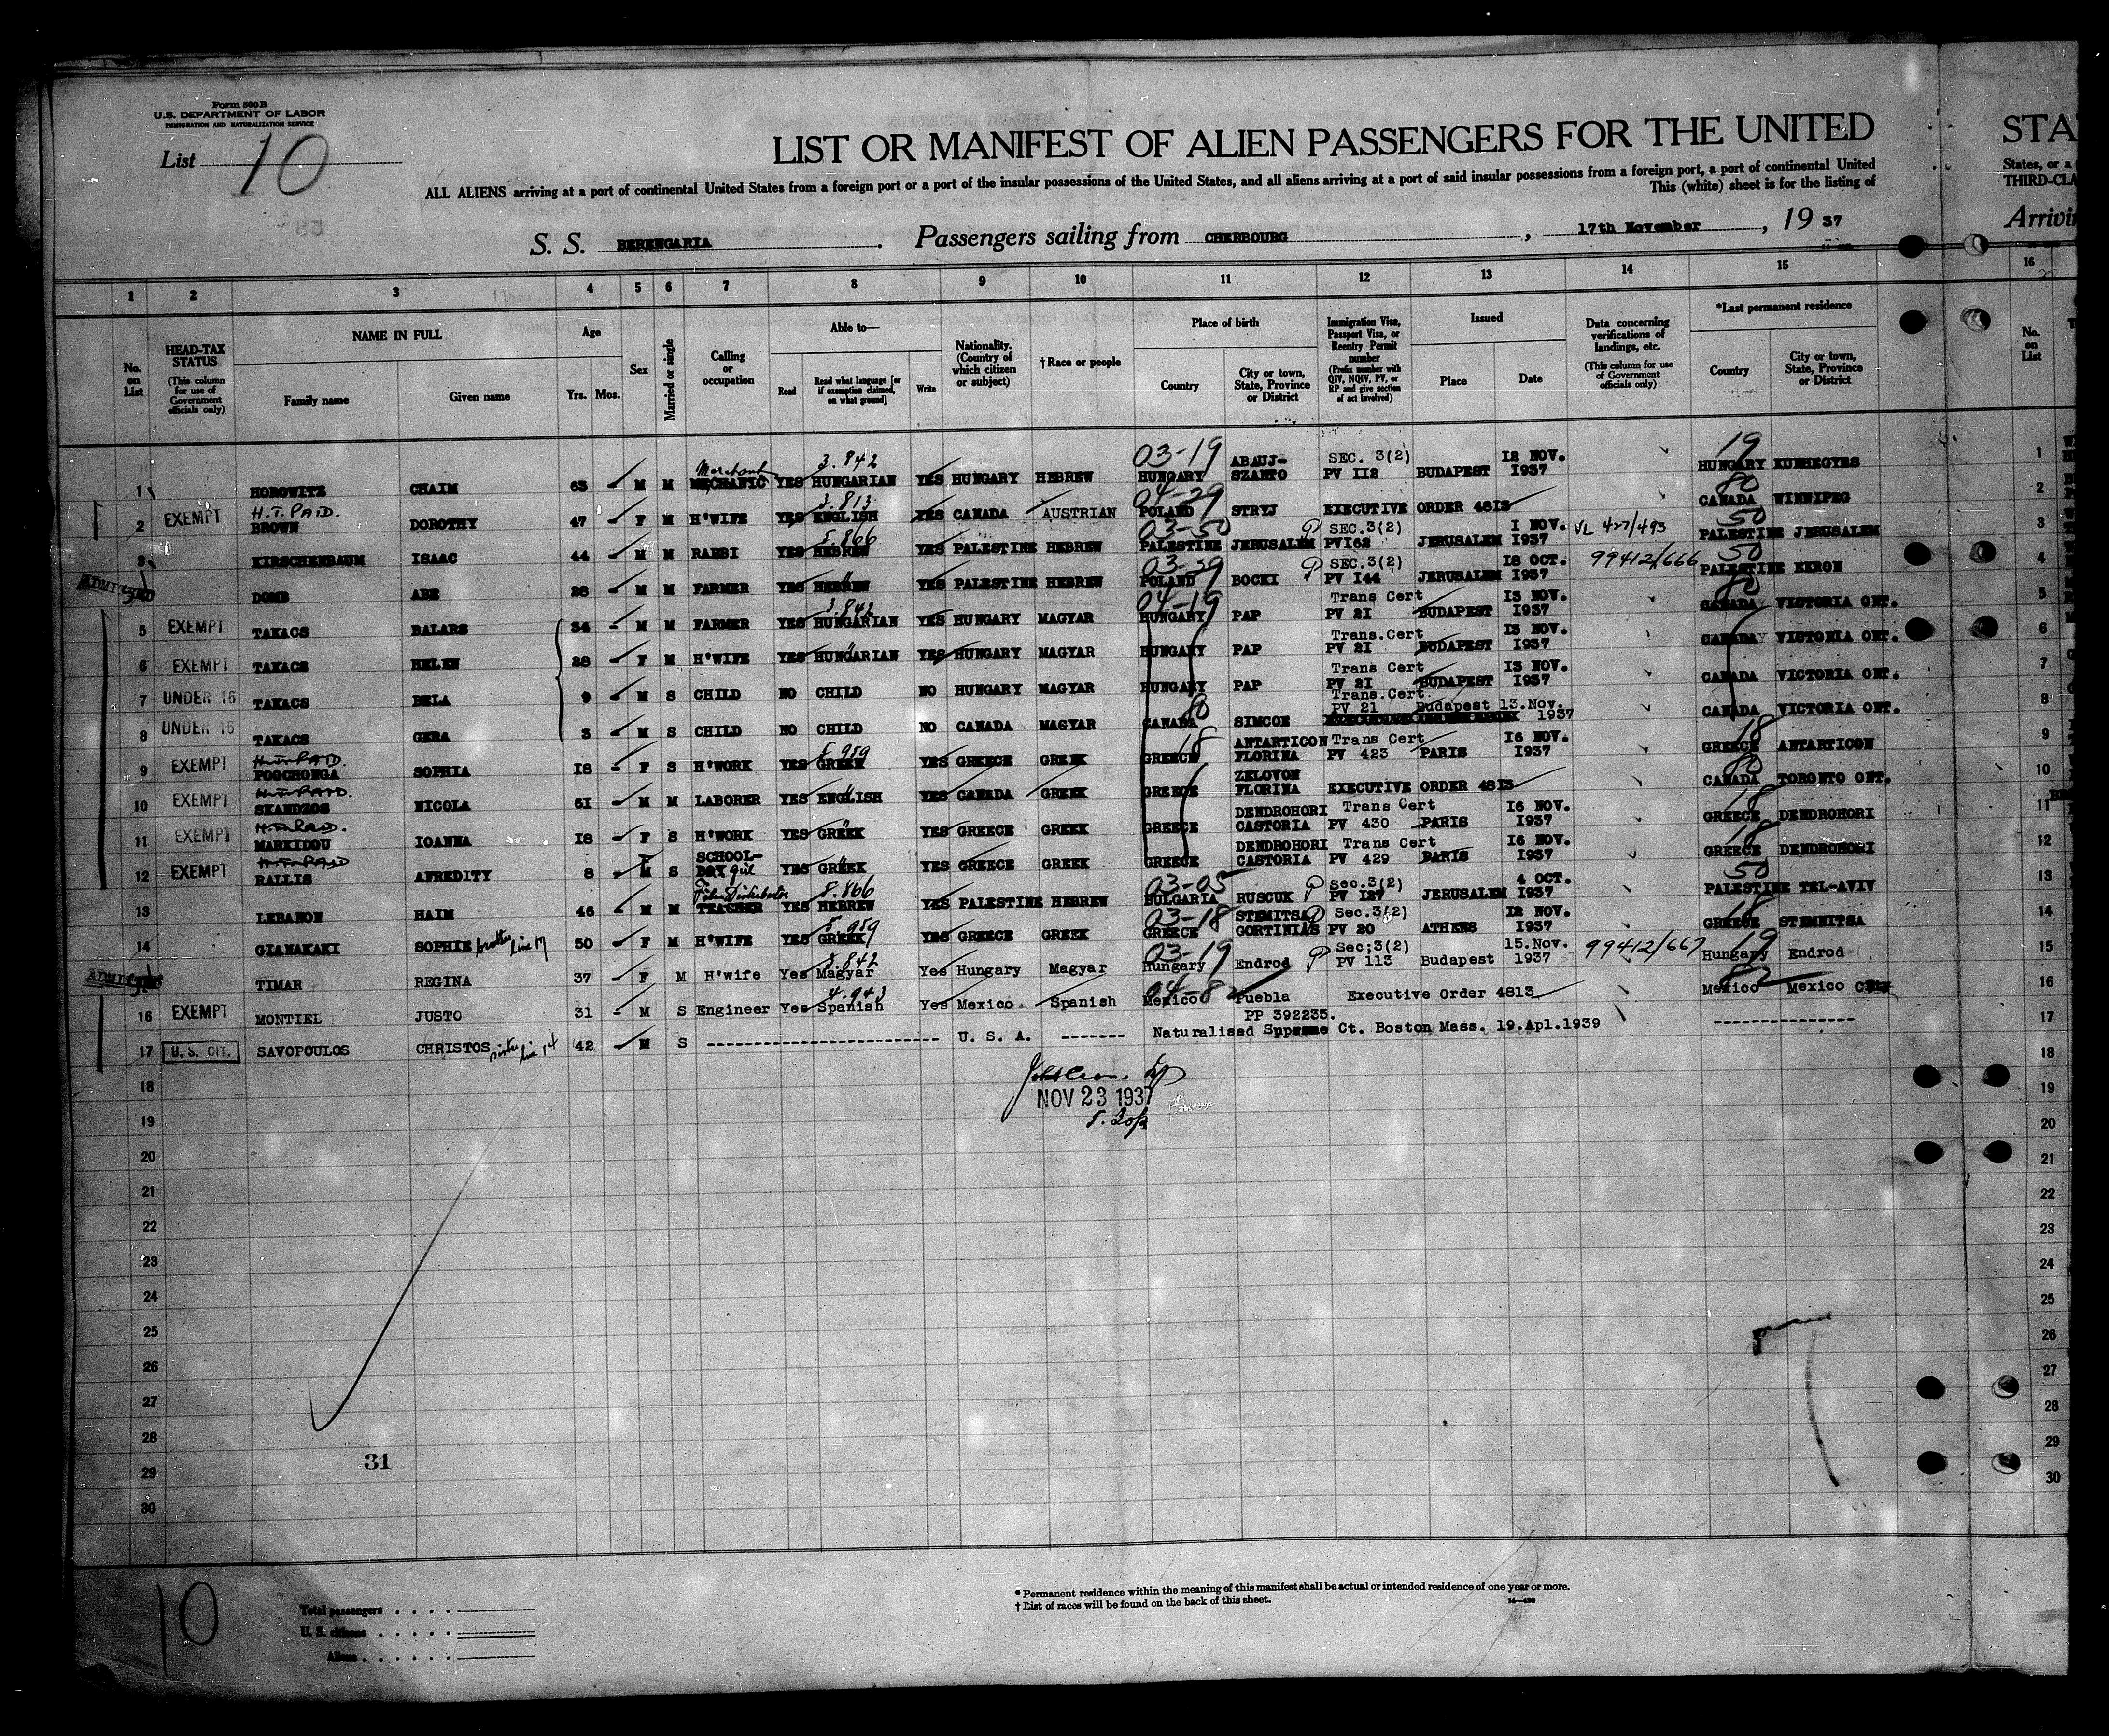 Form 500B
U.S. DEPARTMENT OF LABOR
IMMIGRATION AND NATURALIZATION SERVICE
List 10
LIST OR MANIFEST OF ALIEN PASSENGERS FOR THE UNITED
STA
ALL ALIENS arriving at a port of continental United States from a foreign port or a port of the insular possessions of the United States, and all aliens arriving at a port of said insular possessions from a foreign port, a port of continental United
States, or a
This (white) sheet is for the listing of
THIRD-CLA
S. S. BERENGARIA. Passengers sailing from CHERBOURG, 17th November, 19 37
Arrivin
1 2 3 4 5 6 7 8 9 10 11 12 13 14 15 16
No. on List
HEAD-TAX STATUS (This column for use of Government officials only)
NAME IN FULL
Family name Given name
Age
Yrs. Mos.
Sex
Married or single
Calling or occupation
Able to—
Read Read what language [or if exemption claimed, on what ground] Write
Nationality. (Country of which citizen or subject)
†Race or people
Place of birth
Country City or town, State, Province or District
Immigration Visa, Passport Visa, or Reentry Permit number (Prefix number with QIV, NQIV, PV, or RP and give section of act involved)
Issued
Place Date
Data concerning verifications of landings, etc. (This column for use of Government officials only)
*Last permanent residence
Country City or town, State, Province or District
No. on List
Merchant 3.842 03-19 ABAUJ- SEC. 3(2) 12 NOV. 19
1 HOROWITZ CHAIM 63 M M MECHANIC YES HUNGARIAN YES HUNGARY HEBREW HUNGARY SZANTO PV 112 BUDAPEST 1937 HUNGARY KUNHEGYES 1
H.T. PAID. 3.813 04-29 80
2 EXEMPT BROWN DOROTHY 47 F M H'WIFE YES ENGLISH YES CANADA AUSTRIAN POLAND STRYJ EXECUTIVE ORDER 4813 CANADA WINNIPEG 2
5.866 03-50 SEC.3(2) 1 NOV. VL 427/493 50
3 KIRSCHENBAUM ISAAC 44 M M RABBI YES HEBREW YES PALESTINE HEBREW PALESTINE JERUSALEM PV162 JERUSALEM 1937 PALESTINE JERUSALEM 3
ADMITTED 03-29 SEC.3(2) 18 OCT. 99412/666 50
DOMB ABE 28 M M FARMER YES HEBREW YES PALESTINE HEBREW POLAND BOCKI PV 144 JERUSALEM 1937 PALESTINE EKRON 4
3.842 04-19 Trans Cert 13 NOV. 80
5 EXEMPT TAKACS BALARS 34 M M FARMER YES HUNGARIAN YES HUNGARY MAGYAR HUNGARY PAP PV 21 BUDAPEST 1937 CANADA VICTORIA ONT. 5
Trans.Cert 13 NOV.
6 EXEMPT TAKACS HELEN 28 F M H'WIFE YES HUNGARIAN YES HUNGARY MAGYAR HUNGARY PAP PV 21 BUDAPEST 1937 CANADA VICTORIA ONT. 6
Trans Cert 13 NOV.
7 UNDER 16 TAKACS BELA 9 M S CHILD NO CHILD NO HUNGARY MAGYAR HUNGARY PAP PV 21 BUDAPEST 1937 CANADA VICTORIA ONT. 7
80 Trans.Cert. PV 21 Budapest 13.Nov.
8 UNDER 16 TAKACS GEZA 3 M S CHILD NO CHILD NO CANADA MAGYAR CANADA SIMCOE 1937 CANADA VICTORIA ONT. 8
H.T. PAID. 5.959 18 ANTARTICON Trans Cert 16 NOV. 18
9 EXEMPT POOCHONGA SOPHIA 18 F S H'WORK YES GREEK YES GREECE GREEK GREECE FLORINA PV 423 PARIS 1937 GREECE ANTARTICON 9
H.T. PAID. ZELOVON 80
10 EXEMPT SKANDZOS NICOLA 61 M M LABORER YES ENGLISH YES CANADA GREEK GREECE FLORINA EXECUTIVE ORDER 4813 CANADA TORONTO ONT. 10
H.T. Paid. DENDROHORI Trans Cert 16 NOV. 18
11 EXEMPT MARKIDOU IOANNA 18 F S H'WORK YES GREEK YES GREECE GREEK GREECE CASTORIA PV 430 PARIS 1937 GREECE DENDROHORI 11
H.T. PAID F SCHOOL- DENDROHORI Trans Cert 16 NOV. 18
12 EXEMPT RALLIS AFREDITY 8 M S BOY girl YES GREEK YES GREECE GREEK GREECE CASTORIA PV 429 PARIS 1937 GREECE DENDROHORI 12
Film Distributor 5.866 03-05 Sec.3(2) 4 OCT. 50
13 LEBANON HAIM 46 M M TEACHER YES HEBREW YES PALESTINE HEBREW BULGARIA RUSCUK PV 127 JERUSALEM 1937 PALESTINE TEL-AVIV 13
5.959 03-18 STEMITSA Sec.3(2) 12 NOV. 18
14 GIANAKAKI SOPHIE brother line 17 50 F M H'WIFE YES GREEK YES GREECE GREEK GREECE GORTINIAS PV 20 ATHENS 1937 GREECE STEMNITSA 14
ADMITTED 3.842 03-19 Sec;3(2) 15.Nov. 99412/667 19
TIMAR REGINA 37 F M H'wife Yes Magyar Yes Hungary Magyar Hungary Endrod PV 113 Budapest 1937 Hungary Endrod 15
4.943 04-8 82
16 EXEMPT MONTIEL JUSTO 31 M S Engineer Yes Spanish Yes Mexico. Spanish Mexico Puebla Executive Order 4813 Mexico Mexico City 16
PP 392235.
17 U. S. CIT. SAVOPOULOS CHRISTOS sister line 14 42 M S ------------------------- U. S. A. ------- Naturalised Supreme Ct. Boston Mass. 19.Apl.1939 ---------------- 17
18 18
NOV 23 1937
19 19
20 20
21 21
22 22
23 23
24 24
25 25
26 26
27 27
28 28
31
29 29
30 30
10
* Permanent residence within the meaning of this manifest shall be actual or intended residence of one year or more.
† List of races will be found on the back of this sheet.
Total passengers . . . .
U. S. citizens . . . . .
Aliens . . . . . .